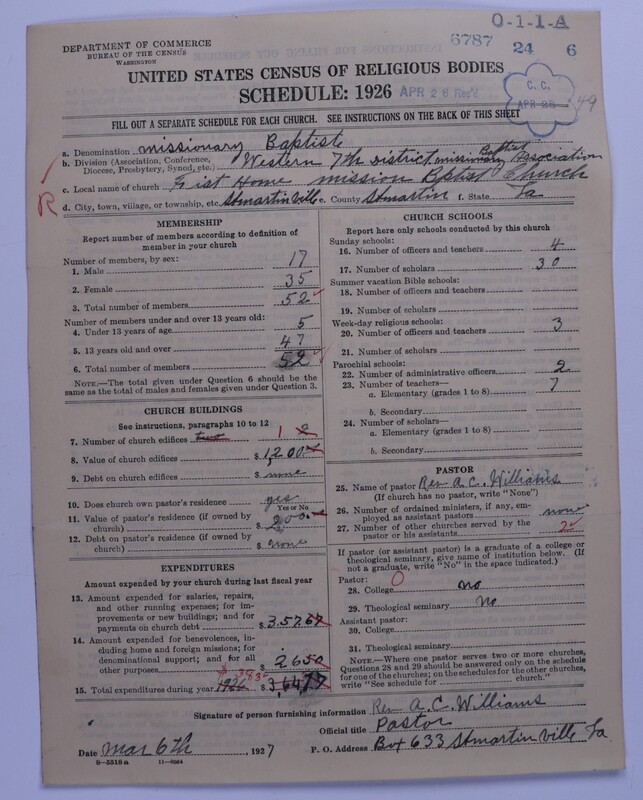 O-1-1-A
DEPARTMENT OF COMMERCE
BUREAU OF THE CENSUS
WASHINGTON
6787 24 6
UNITED STATES CENSUS OF RELIGIOUS BODIES
SCHEDULE: 1926
APR 26 Rec'd
C. C.
APR 28
FILL OUT A SEPARATE SCHEDULE FOR EACH CHURCH. SEE INSTRUCTIONS ON THE BACK OF THIS SHEET
a. Denomination missionary Baptist
b. Division (Association, Conference, Diocese, Presbytery, Synod, etc.) Western 7th District missionary Baptist Association
c. Local name of church Fist Home mission Bptist Church
R
d. City, town, village, or township, etc. St martin ville e. County St martin f. State La
MEMBERSHIP
Report number of members according to definition of member in your church
Number of members, by sex:
1. Male 17
2. Female 35
3. Total number of members 52
Number of members under and over 13 years old:
4. Under 13 years of age 5
5. 13 years old and over 47
6. Total number of members 52
NOTE.—The total given under Question 6 should be the same as the total of males and females given under Question 3.
CHURCH BUILDINGS
See instructions, paragraphs 10 to 12
7. Number of church edifices two 1 2
8. Value of church edifices $ 1,200
9. Debt on church edifices $ none
10. Does church own pastor's residence yes
Yes or No
11. Value of pastor's residence (if owned by church) $ 200
12. Debt on pastor's residence (if owned by church) $ none
EXPENDITURES
Amount expended by your church during last fiscal year
13. Amount expended for salaries, repairs, and other running expenses; for improvements or new buildings; and for payments on church debt $ 357 67
14. Amount expended for benevolences, including home and foreign missions; for denominational support; and for all other purposes $ 26 50
15. Total expenditures during year 1926 $
CHURCH SCHOOLS
Report here only schools conducted by this church
Sunday schools:
16. Number of officers and teachers 4
17. Number of scholars 30
Summer vacation Bible schools:
18. Number of officers and teachers
19. Number of scholars
Week-day religious schools:
20. Number of officers and teachers 3
21. Number of scholars
Parochial schools:
22. Number of administrative officers 2
23. Number of teachers—
a. Elementary (grades 1 to 8) 7
b. Secondary
24. Number of scholars—
a. Elementary (grades 1 to 8)
b. Secondary
PASTOR
25. Name of pastor Rev A. C. Williams
(If church has no pastor, write "None")
26. Number of ordained ministers, if any, employed as assistant pastors none
27. Number of other churches served by the pastor or his assistants 2
If pastor (or assistant pastor) is a graduate of a college or theological seminary, give name of institution below. (If not a graduate, write "No" in the space indicated.)
Pastor:
28. College no
29. Theological seminary No
Assistant pastor:
30. College
31. Theological seminary
NOTE.—Where one pastor serves two or more churches, Questions 28 and 29 should be answered only on the schedule for one of the churches; on the schedules for the other churches, write "See schedule for church."
Signature of person furnishing information Rev A. C. Williams
Official title Pastor
Date Mar 6th, 1927
P. O. Address Box 633 St martin ville La
8-5518 a